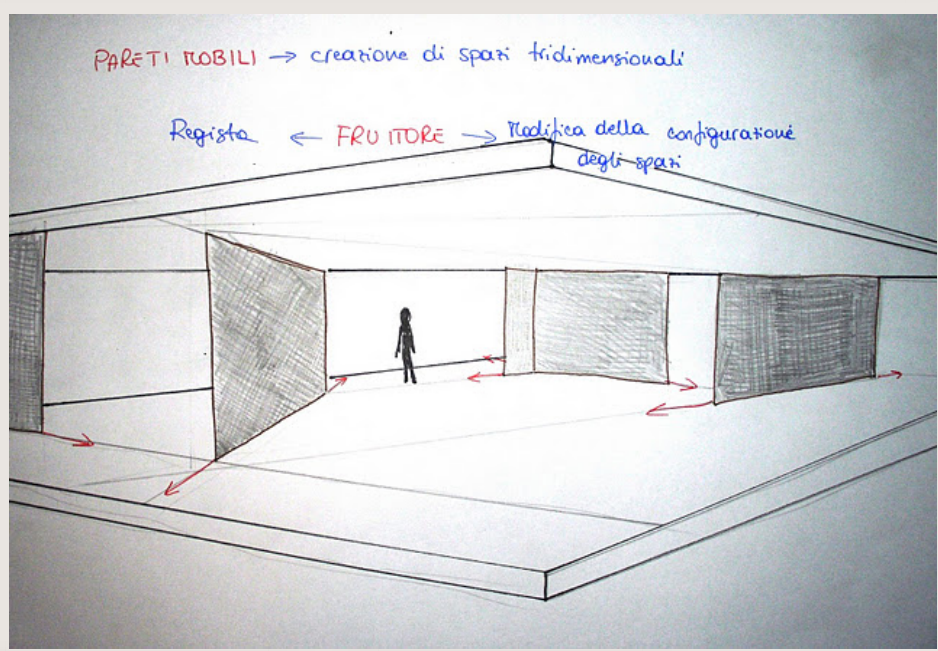 PARETI MOBILI → creazione di spazi tridimensionali
Regista ← FRUITORE → Modifica della configurazione
degli spazi